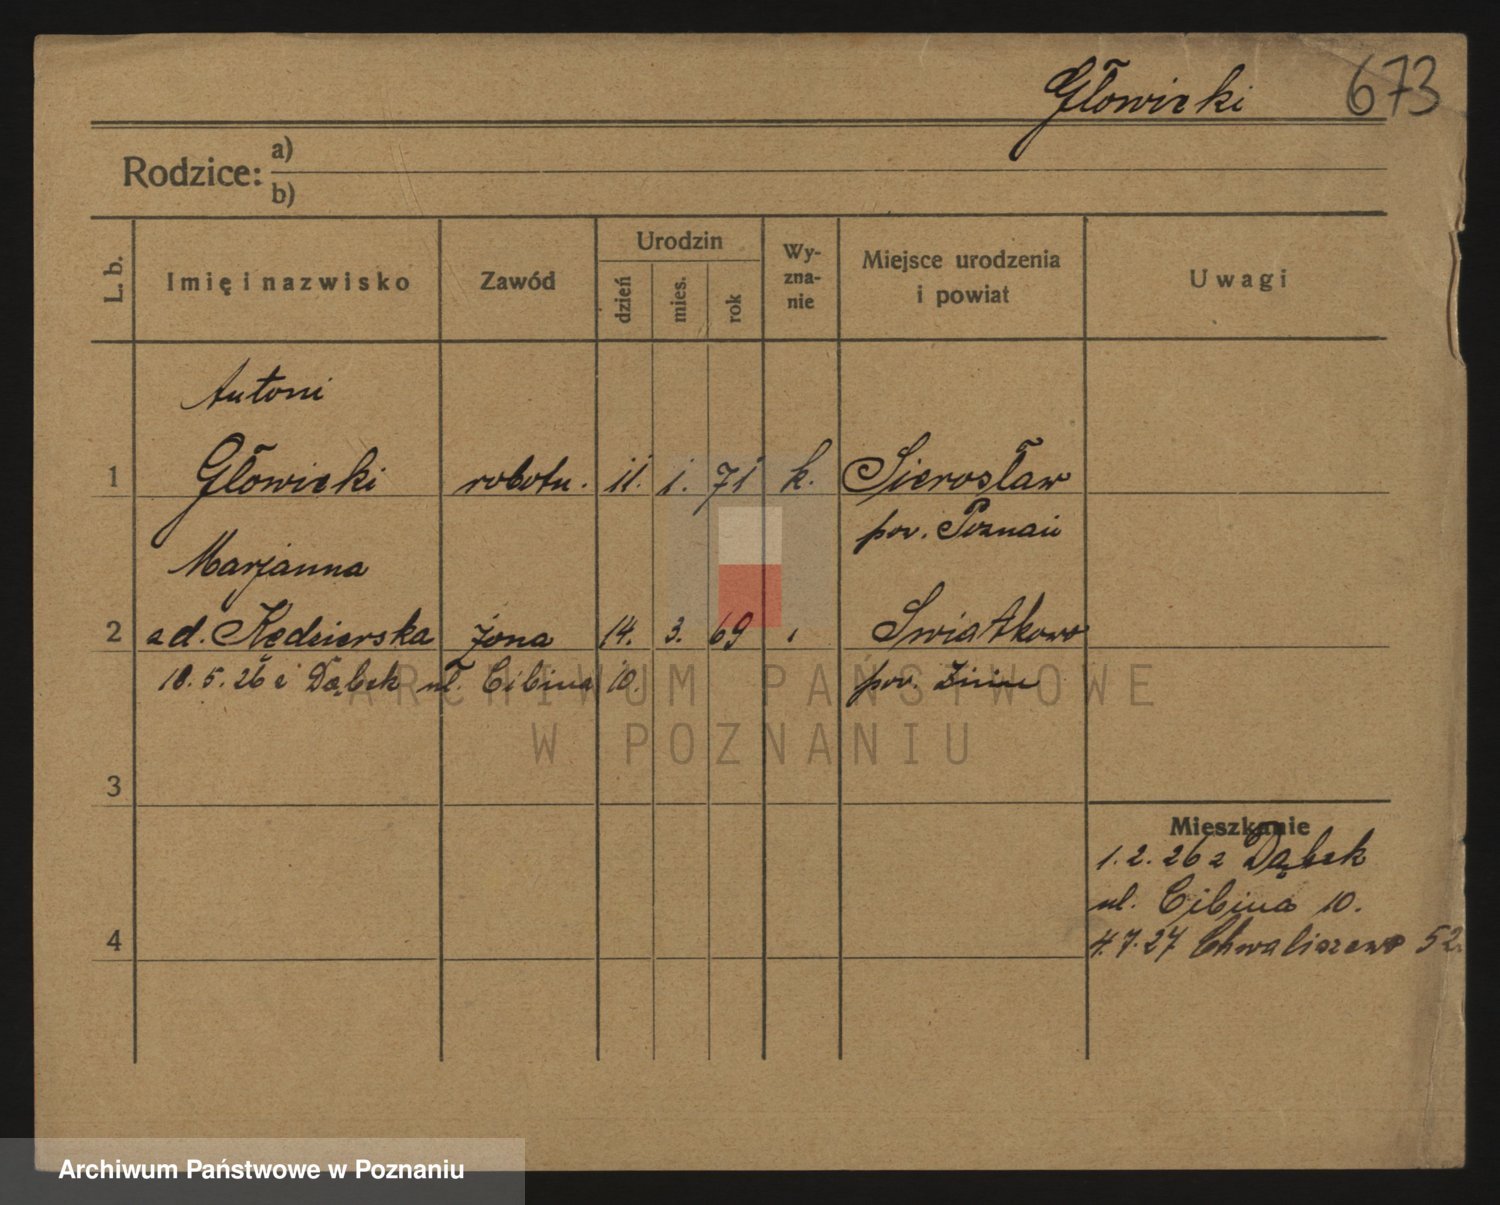 Głowicki 673
Rodzice: a)
b)
L. b. Imię i nazwisko Zawód Urodzin dzień mies. rok Wy-zna-nie Miejsce urodzenia i powiat Uwagi
Antoni
1 Głowicki robotn. 11. 1. 71 k. Sierosław
pow. Poznań
Marjanna
2 zd. Kędzierska żona 14. 3. 69 Świątkowo
18.5.26 z Dąbek ul. Cibina 10. pow. Żnin
ARCHIWUM PAŃSTWOWE
W POZNANIU
3
Mieszkanie
1.2.26 z Dąbek
ul. Cibina 10.
4
4.7.27 Chwaliszewo 52.
Archiwum Państwowe w Poznaniu